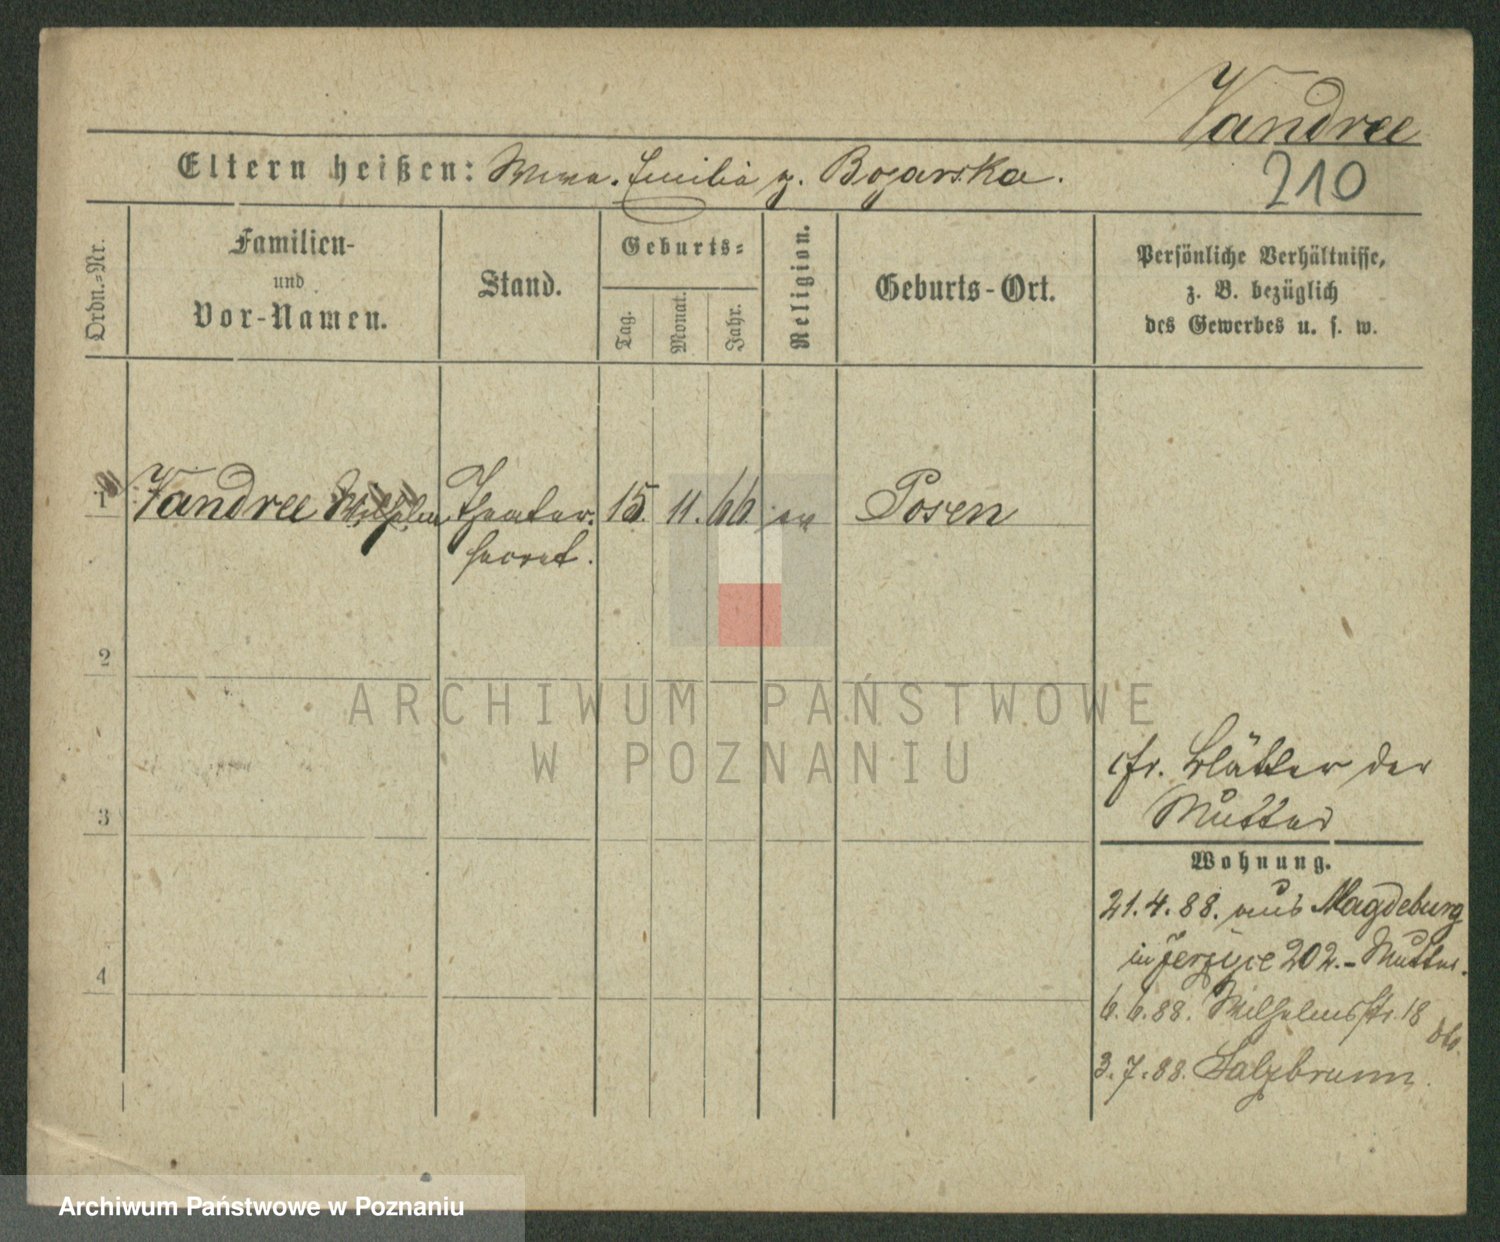 Vandree
Eltern heißen: Wwe. Emilia g. Bogarska.
210
Ordn.-Nr.
Familien-
und
Vor-Namen.
Stand.
Geburts-
Tag.
Monat.
Jahr.
Religion.
Geburts-Ort.
Persönliche Verhältnisse,
z. B. bezüglich
des Gewerbes u. s. w.
1 Vandree Wilhelm Theater- 15. 11. 66 ev Posen
secret.
2
ARCHIWUM PAŃSTWOWE
W POZNANIU
cfr. Blätter der
Mutter
3
Wohnung.
21.4.88. aus Magdeburg
in Jerzyce 202.- Mutter.
4
6.6.88. Wilhelmsstr. 18
3.7.88. Salzbrunn.
Archiwum Państwowe w Poznaniu